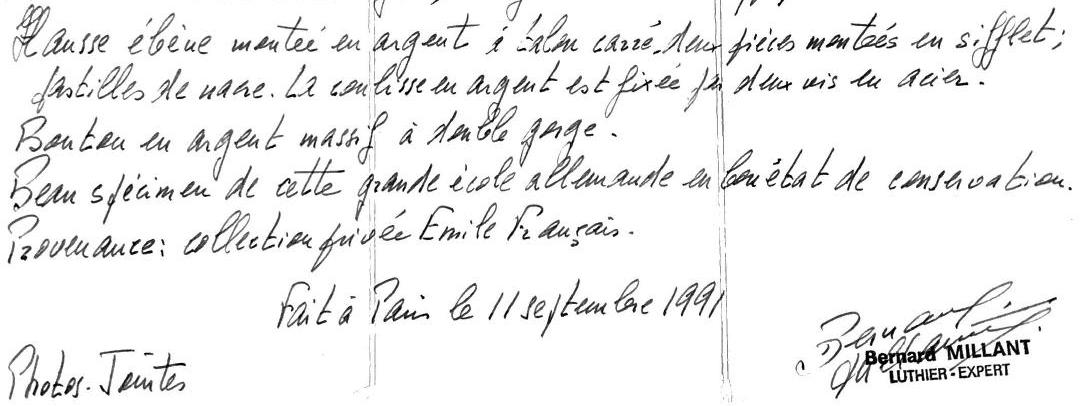 Hausse ébène montée en argent à talon carré, deux pièces montées en sifflet;
pastilles de nacre. La coulisse en argent est fixée par deux vis en acier.
Bouton en argent massif à double gorge.
Beau spécimen de cette grande école allemande en bon état de conservation.
Provenance: collection privée Emile Français.
Fait à Paris le 11 septembre 1991
Bernard
Bernard MILLANT
LUTHIER-EXPERT
Photos-Jointes